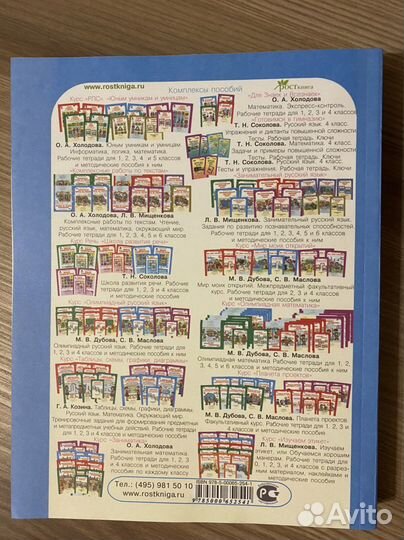 www.rostkniga.ru
Комплексы пособий
РОСТкнига
Курс «РПС» «Юным умникам и умницам»
«Для Знаек и Всезнаек»
О. А. Холодова
Математика. Экспресс-контроль.
Рабочие тетради для 1, 2, 3, 4 классов
«Готовимся в гимназию»
Т. Н. Соколова. Русский язык. 4 класс.
Упражнения и диктанты повышенной сложности
Тесты. Рабочая тетрадь. Ключи
Т. Н. Соколова. Математика. 4 класс.
Задачи и примеры повышенной сложности
Тесты. Рабочая тетрадь. Ключи
Т. Н. Соколова. Русский язык. 4 класс
Тесты и упражнения. Рабочая тетрадь. Ключи
О. А. Холодова. Юным умникам и умницам
Информатика, логика, математика.
Рабочие тетради для 1, 2, 3, 4, 5 классов
и методические пособия к ним
«Комплексные работы по текстам»
О. А. Холодова, Л. В. Мищенкова
Комплексные работы по текстам. Чтение,
русский язык, математика, окружающий мир.
Рабочие тетради для 1, 2, 3, 4, 5 и 6 классов
«Занимательный русский язык»
Л. В. Мищенкова. Занимательный русский язык.
Задания по развитию познавательных способностей.
Рабочие тетради для 1, 2, 3, 4, 5, 6 классов
и методические пособия к ним
Курс Речь «Школа развития речи»
Т. Н. Соколова
Школа развития речи. Рабочие
тетради для 1, 2, 3 и 4 классов
и методические пособия
Курс «Мир моих открытий»
М. В. Дубова, С. В. Маслова
Мир моих открытий. Межпредметный факультативный
курс. Рабочие тетради для 2, 3 и 4 классов
и методические пособия к ним
Курс «Олимпиадный русский язык»
М. В. Дубова, С. В. Маслова
Олимпиадный русский язык. Рабочие тетради
для 1, 2, 3 и 4 классов и методические пособия к ним
Курс «Олимпиадная математика»
М. В. Дубова, С. В. Маслова
Олимпиадная математика. Рабочие тетради для 1, 2,
3, 4 классов и методические пособия к ним
Курс «Таблицы, схемы, графики, диаграммы»
Г. А. Козина. Таблицы, схемы, графики, диаграммы.
Русский язык. Математика. Окружающий мир.
Тренировочные задания для формирования предметных
и метапредметных учебных действий. Рабочие тетради
для 1, 2, 3 и 4 классов
Курс «Планета проектов»
М. В. Дубова, С. В. Маслова. Планета проектов
Факультативный курс. Рабочие тетради для 2, 3
и 4 классов и методические пособия к ним
О. А. Холодова
Занимательная математика.
Рабочие тетради и методические
пособия по каждому классу
Курс «Изучаем этикет»
Л. В. Мищенкова. Изучаем
этикет, или Обучаемся хорошим
манерам. Рабочие тетради
для 1, 2, 3 и 4 классов с разрез-
ным материалом, наклейками
и методические пособия
Тел.: (495) 981 50 10
www.rostkniga.ru
ISBN 978-5-00065-254-1
9785000652541
Avito